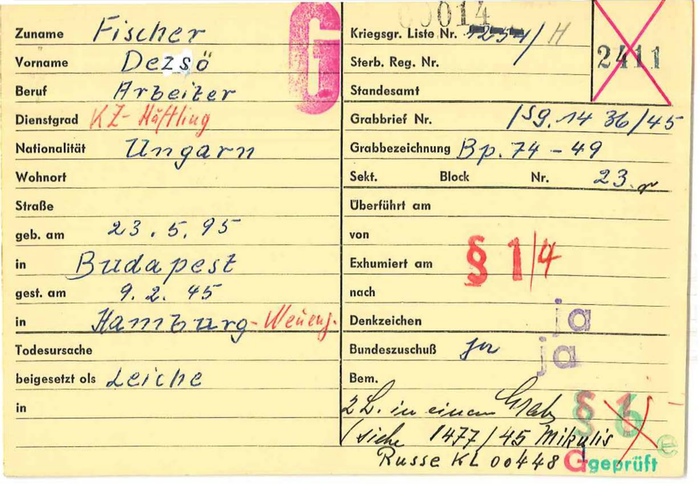 Zuname Fischer
Vorname Dezsö
Beruf Arbeiter
Dienstgrad KZ-Häftling
Nationalität Ungarn
Wohnort
Straße
geb. am 23.5.95
in Budapest
gest. am 9.2.45
in Hamburg-Neueng.
Todesursache
beigesetzt als Leiche
in
G
00014
Kriegsgr. Liste Nr. 1254/H
2411
Sterb. Reg. Nr.
Standesamt
Grabbrief Nr. 1436/45
Grabbezeichnung Bp. 74-49
Sekt. Block Nr. 23.
Überführt am
von
Exhumiert am § 1/4
nach
Denkzeichen ja
Bundeszuschuß ja
Bem.
2 L. in einem Grab
(siehe 1477/45 Mikulis
Russe KL 00448
Geprüft